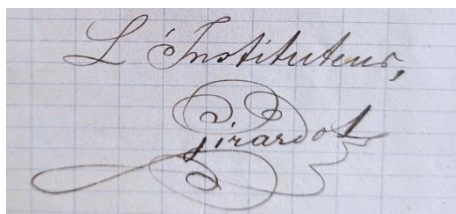 L'Instituteur,
Girardot